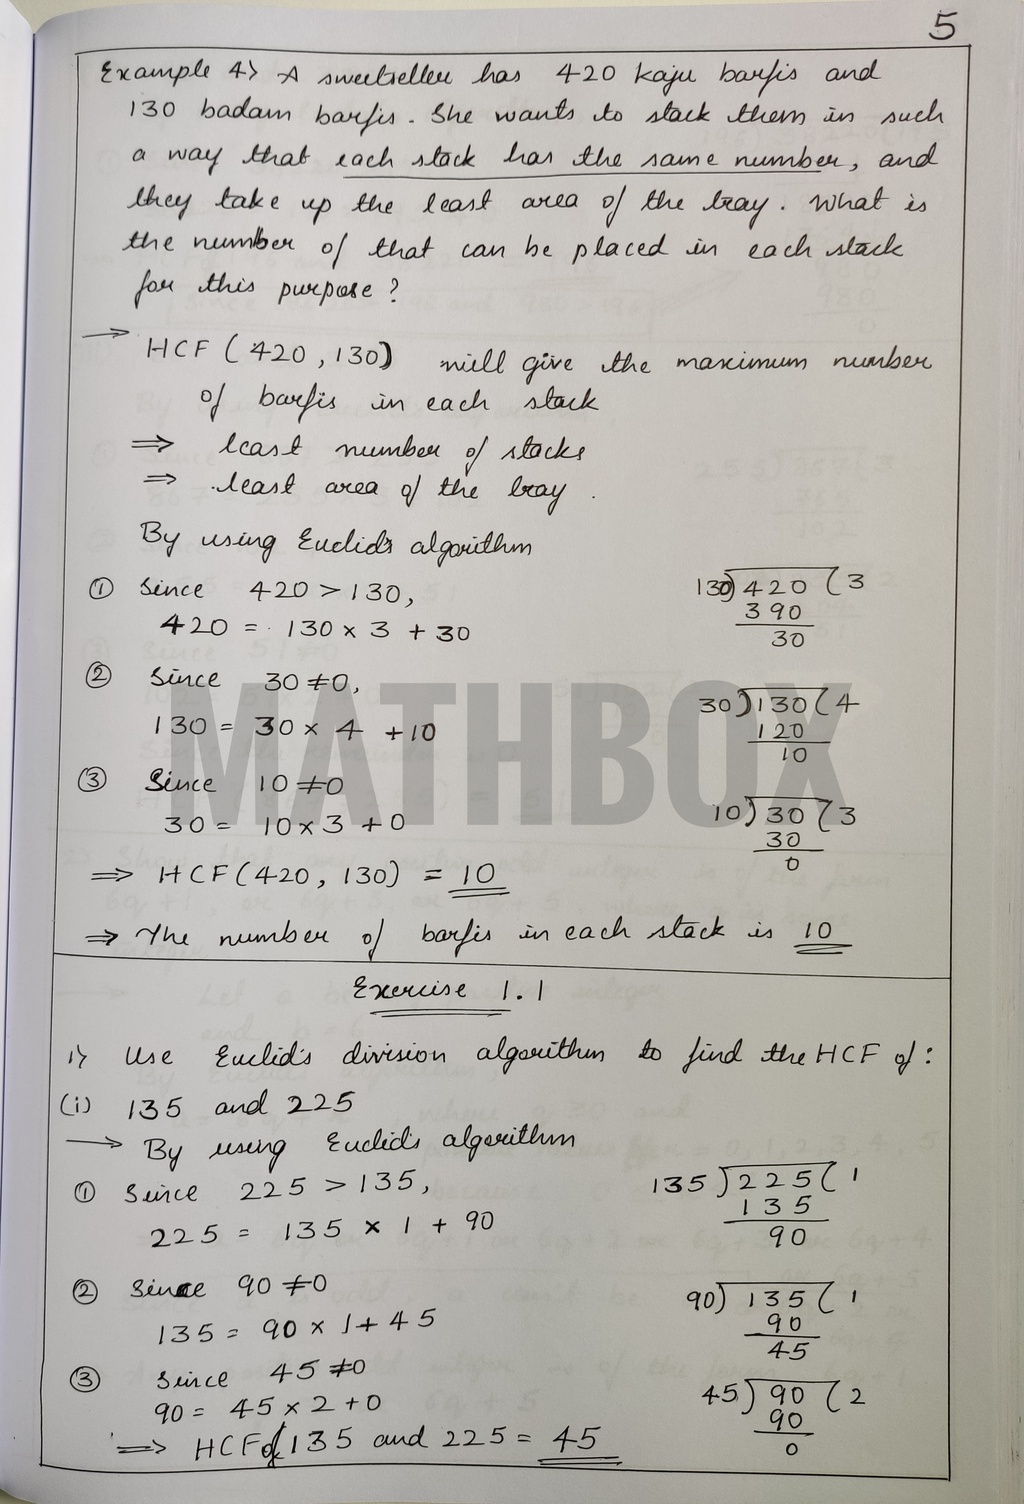 5
Example 4> A sweetseller has 420 kaju barfis and
130 badam barfis. She wants to stack them in such
a way that each stack has the same number, and
they take up the least area of the tray. What is
the number of that can be placed in each stack
for this purpose?
→ HCF (420, 130) will give the maximum number
of barfis in each stack
⇒ least number of stacks
⇒ least area of the tray.
By using Euclid's algorithm
① Since 420 > 130,
420 = 130 x 3 + 30
130)420(3
390
30
② Since 30 ≠ 0,
130 = 30 x 4 + 10
30)130(4
120
10
③ Since 10 ≠ 0
30 = 10 x 3 + 0
10)30(3
30
0
⇒ HCF(420, 130) = 10
⇒ The number of barfis in each stack is 10
MATHBOX
Exercise 1.1
1> Use Euclid's division algorithm to find the HCF of:
(i) 135 and 225
→ By using Euclid's algorithm
① Since 225 > 135,
225 = 135 x 1 + 90
135)225(1
135
90
② Since 90 ≠ 0
135 = 90 x 1 + 45
90)135(1
90
45
③ Since 45 ≠ 0
90 = 45 x 2 + 0
45)90(2
90
0
⇒ HCF of 135 and 225 = 45